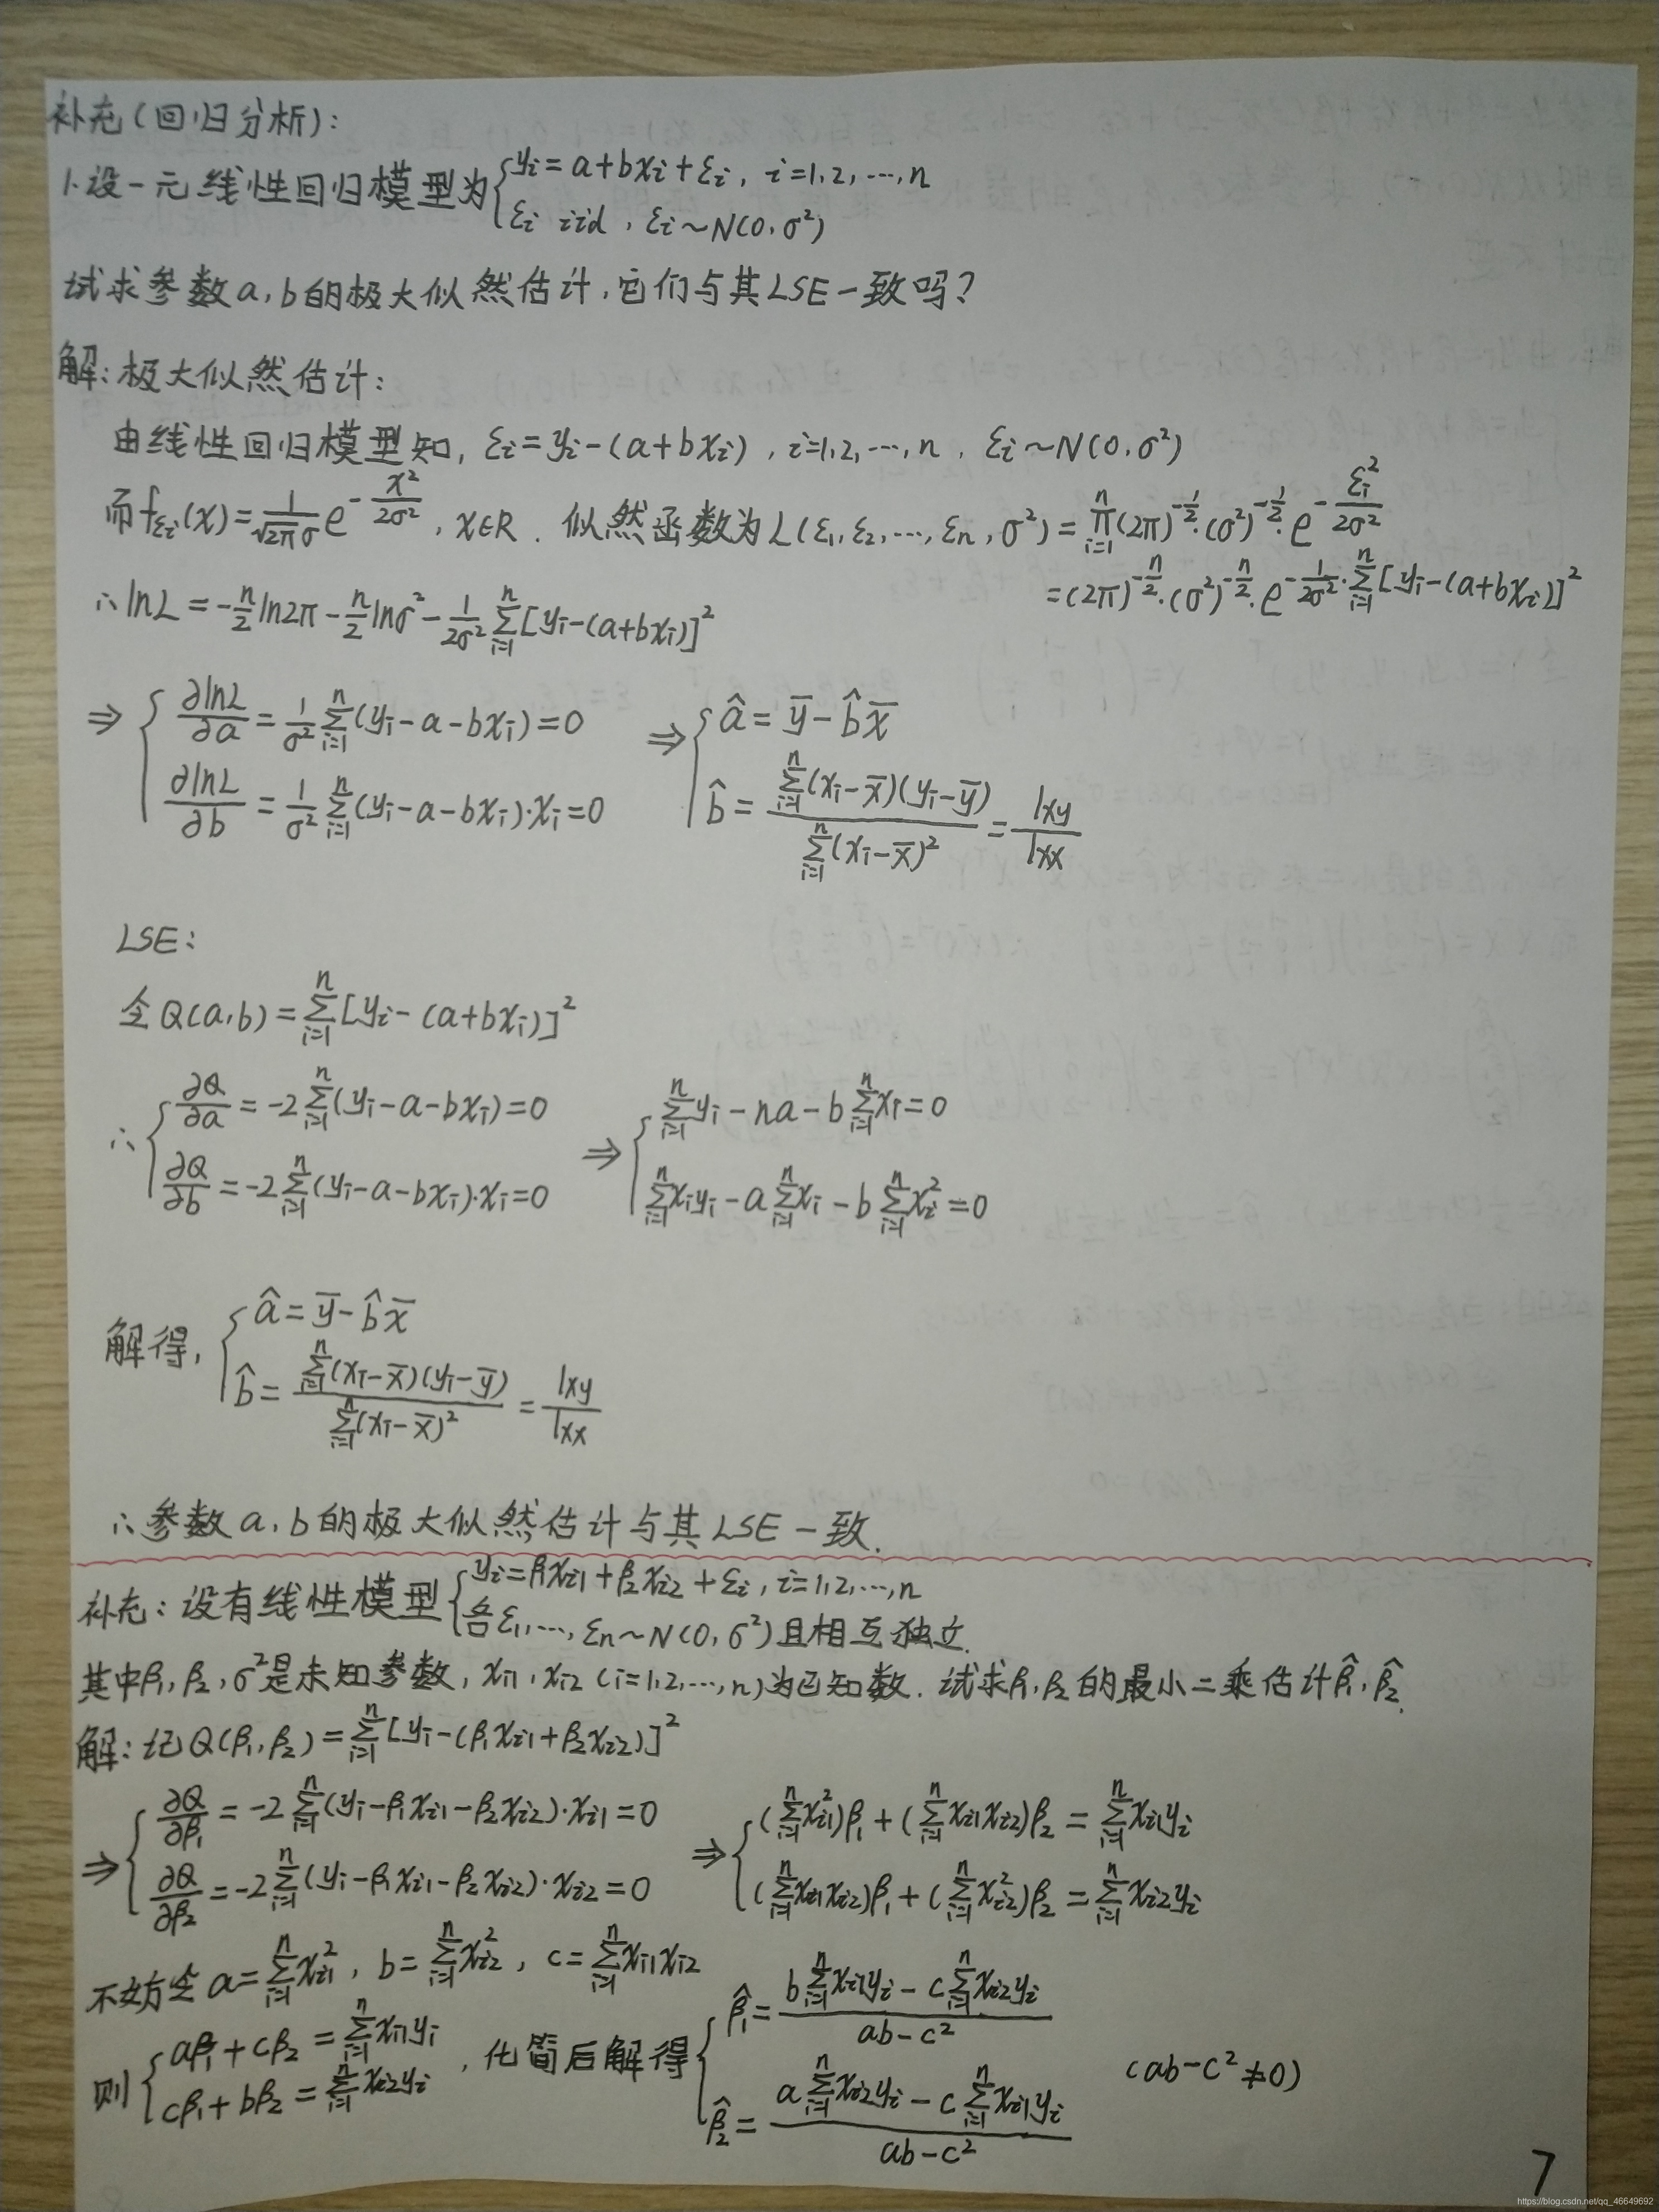 补充(回归分析):
1.设一元线性回归模型为{yᵢ=a+bxᵢ+εᵢ, i=1,2,…,n
εᵢ iid, εᵢ~N(0,σ²)
试求参数a,b的极大似然估计,它们与其LSE一致吗?
解:极大似然估计:
由线性回归模型知, εᵢ=yᵢ-(a+bxᵢ), i=1,2,…,n, εᵢ~N(0,σ²)
而f_{εᵢ}(x)=\frac{1}{\sqrt{2π}σ}e^{-\frac{x²}{2σ²}}, x∈R. 似然函数为L(ε₁,ε₂,…,εₙ,σ²)=\prod_{i=1}^{n}(2π)^{-\frac{1}{2}}·(σ²)^{-\frac{1}{2}}·e^{-\frac{εᵢ²}{2σ²}}
=(2π)^{-\frac{n}{2}}·(σ²)^{-\frac{n}{2}}·e^{-\frac{1}{2σ²}·\sum_{i=1}^{n}[yᵢ-(a+bxᵢ)]²}
∴lnL=-\frac{n}{2}ln2π-\frac{n}{2}lnσ²-\frac{1}{2σ²}\sum_{i=1}^{n}[yᵢ-(a+bxᵢ)]²
⇒{\frac{∂lnL}{∂a}=\frac{1}{σ²}\sum_{i=1}^{n}(yᵢ-a-bxᵢ)=0 ⇒{\hat{a}=\bar{y}-\hat{b}\bar{x}
\frac{∂lnL}{∂b}=\frac{1}{σ²}\sum_{i=1}^{n}(yᵢ-a-bxᵢ)·xᵢ=0 \hat{b}=\frac{\sum_{i=1}^{n}(xᵢ-\bar{x})(yᵢ-\bar{y})}{\sum_{i=1}^{n}(xᵢ-\bar{x})²}=\frac{lxy}{lxx}
LSE:
令Q(a,b)=\sum_{i=1}^{n}[yᵢ-(a+bxᵢ)]²
∴{\frac{∂Q}{∂a}=-2\sum_{i=1}^{n}(yᵢ-a-bxᵢ)=0 ⇒{\sum_{i=1}^{n}yᵢ-na-b\sum_{i=1}^{n}xᵢ=0
\frac{∂Q}{∂b}=-2\sum_{i=1}^{n}(yᵢ-a-bxᵢ)·xᵢ=0 \sum_{i=1}^{n}xᵢyᵢ-a\sum_{i=1}^{n}xᵢ-b\sum_{i=1}^{n}xᵢ²=0
解得,{\hat{a}=\bar{y}-\hat{b}\bar{x}
\hat{b}=\frac{\sum_{i=1}^{n}(xᵢ-\bar{x})(yᵢ-\bar{y})}{\sum_{i=1}^{n}(xᵢ-\bar{x})²}=\frac{lxy}{lxx}
∴参数a,b的极大似然估计与其LSE一致.
补充:设有线性模型{yᵢ=β₁xᵢ₁+β₂xᵢ₂+εᵢ, i=1,2,…,n
各ε₁,…,εₙ~N(0,σ²)且相互独立.
其中β₁,β₂,σ²是未知参数, xᵢ₁,xᵢ₂(i=1,2,…,n)为已知数. 试求β₁,β₂的最小二乘估计\hat{β}₁,\hat{β}₂.
解:记Q(β₁,β₂)=\sum_{i=1}^{n}[yᵢ-(β₁xᵢ₁+β₂xᵢ₂)]²
⇒{\frac{∂Q}{∂β₁}=-2\sum_{i=1}^{n}(yᵢ-β₁xᵢ₁-β₂xᵢ₂)·xᵢ₁=0 ⇒{(\sum_{i=1}^{n}xᵢ₁²)β₁+(\sum_{i=1}^{n}xᵢ₁xᵢ₂)β₂=\sum_{i=1}^{n}xᵢ₁yᵢ
\frac{∂Q}{∂β₂}=-2\sum_{i=1}^{n}(yᵢ-β₁xᵢ₁-β₂xᵢ₂)·xᵢ₂=0 (\sum_{i=1}^{n}xᵢ₁xᵢ₂)β₁+(\sum_{i=1}^{n}xᵢ₂²)β₂=\sum_{i=1}^{n}xᵢ₂yᵢ
不妨令a=\sum_{i=1}^{n}xᵢ₁², b=\sum_{i=1}^{n}xᵢ₂², c=\sum_{i=1}^{n}xᵢ₁xᵢ₂
则{aβ₁+cβ₂=\sum_{i=1}^{n}xᵢ₁yᵢ
cβ₁+bβ₂=\sum_{i=1}^{n}xᵢ₂yᵢ
,化简后解得{\hat{β}₁=\frac{b\sum_{i=1}^{n}xᵢ₁yᵢ-c\sum_{i=1}^{n}xᵢ₂yᵢ}{ab-c²}
\hat{β}₂=\frac{a\sum_{i=1}^{n}xᵢ₂yᵢ-c\sum_{i=1}^{n}xᵢ₁yᵢ}{ab-c²}
(ab-c²≠0)
7
https://blog.csdn.net/qq_46649692